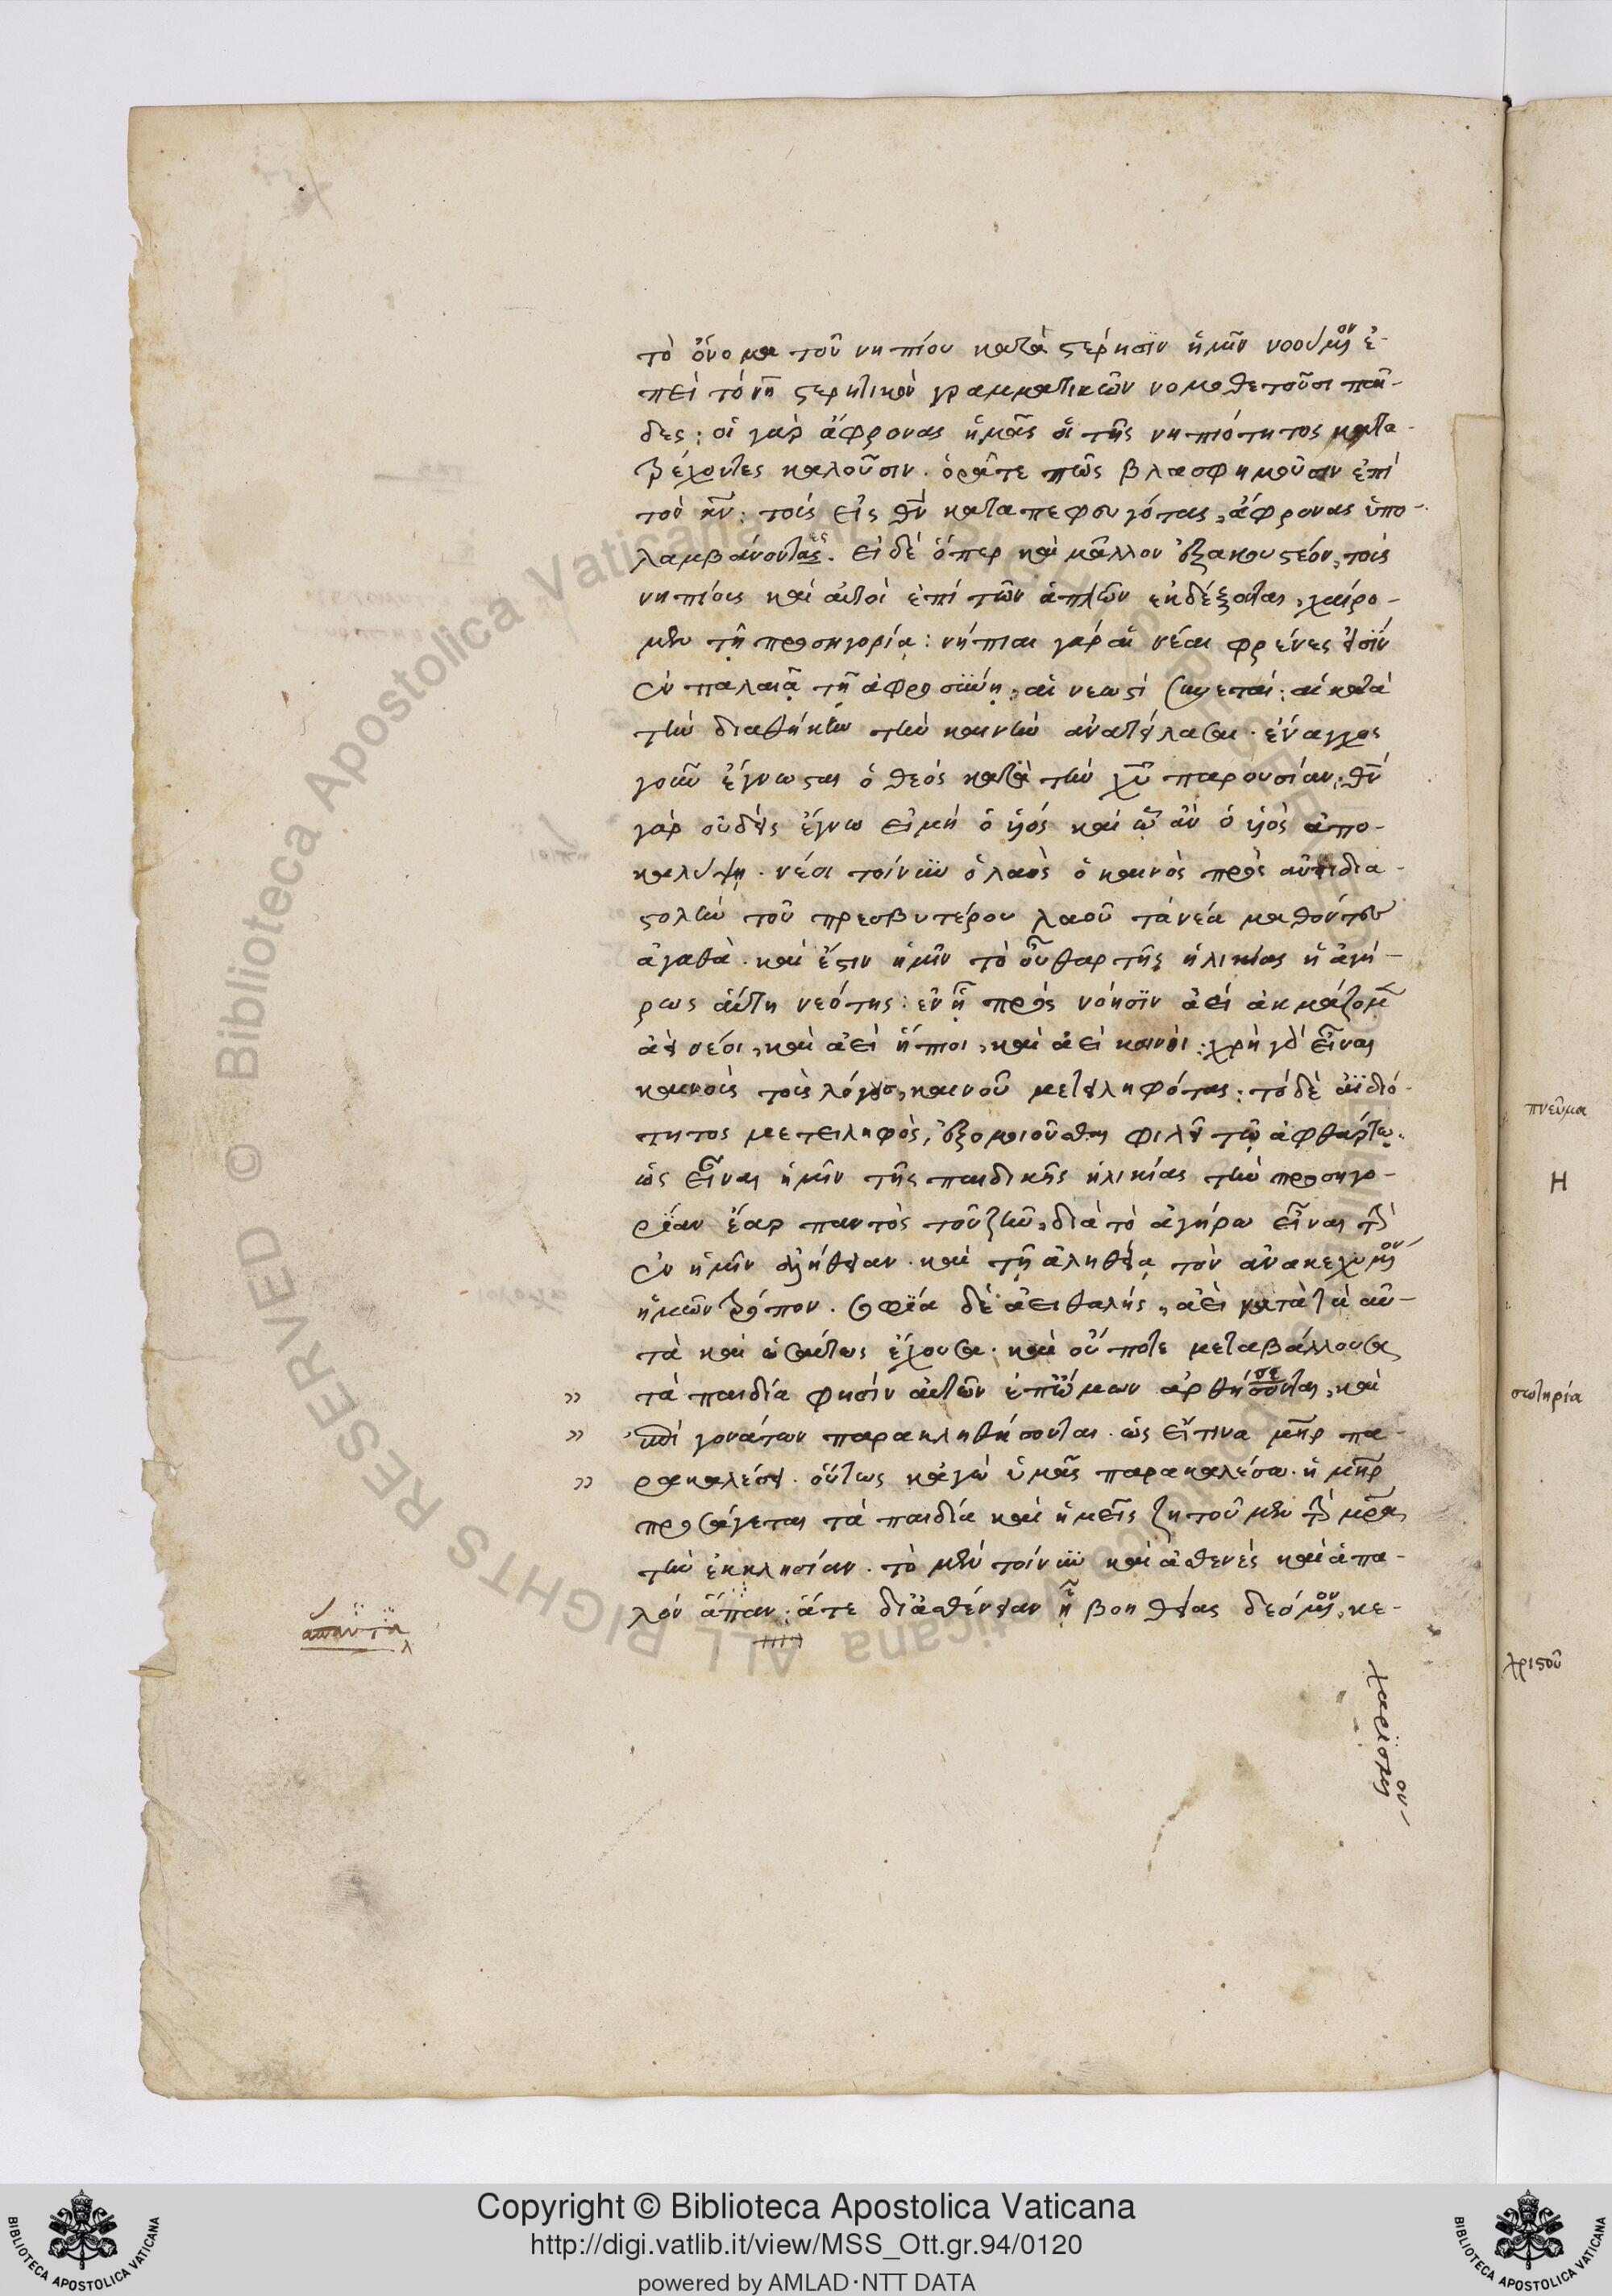 τὸ ὄνομα τοῦ νηπίου κατὰ στέρησιν ἡμῖν νοούμενον ἐ-
πεὶ τὸ νῆ στερητικὸν γραμματικῶν νομοθετοῦσι παῖ-
δες: οἱ γὰρ ἄφρονας ἡμᾶς οἱ τῆς νηπιότητος κατα-
τρέχοντες καλοῦσιν. ὁρᾶτε πῶς βλασφημοῦσιν ἐπὶ
τὸν κν̅: τοὺς εἰς θν̅ καταπεφευγότας, ἄφρονας ὑπο-
λαμβάνοντας. εἰ δὲ ὅπερ καὶ μᾶλλον ἐξακουστέον, τοὺς
νηπίους καὶ αὐτοὶ ἐπὶ τῶν ἁπλῶν ἐκδέξονται, χαίρο-
μεν τῇ προσηγορίᾳ: νήπιαι γὰρ αἱ νέαι φρένες εἰσὶν
ἐν παλαιᾷ τῇ ἀφροσύνῃ, αἱ νεωστὶ συνεταί: αἱ κατὰ
τὴν διαθήκην τὴν καινὴν ἀνατείλασαι. ἔναγχος
γοῦν ἔγνωσται ὁ θεὸς κατὰ τὴν χυ̅ παρουσίαν, θν̅
γὰρ οὐδεὶς ἔγνω εἰ μὴ ὁ υἱός καὶ ᾧ ἂν ὁ υἱὸς ἀπο-
καλύψῃ. νέοι τοίνυν ὁ λαὸς ὁ καινὸς πρὸς ἀντιδια-
στολὴν τοῦ πρεσβυτέρου λαοῦ τὰ νέα μαθόντες
ἀγαθὰ. καὶ ἔστιν ἡμῖν τὸ οὖθαρ τῆς ἡλικίας ἡ ἀγή-
ρως αὕτη νεότης: ἐν ᾗ πρὸς νόησιν ἀεὶ ἀκμάζομεν
ἀεὶ νέοι, καὶ ἀεὶ ἤπιοι, καὶ ἀεὶ καινοὶ: χρὴ γὰρ εἶναι
καινοὺς τοὺς λόγου καινοῦ μετειληφότας: τὸ δὲ ἀϊδιό-
τητος μετειληφὸς, ἐξομοιοῦσθαι φιλεῖ τῷ ἀφθάρτῳ.
ὡς εἶναι ἡμῖν τῆς παιδικῆς ἡλικίας τὴν προσηγο-
ρίαν ἔαρ παντὸς τοῦ ζῆν, διὰ τὸ ἀγήρω εἶναι τὴν
ἐν ἡμῖν ἀλήθειαν. καὶ τῇ ἀληθείᾳ τὸν ἀνακεχυμένον
ἡμῶν τρόπον. σοφία δὲ ἀειθαλὴς, ἀεὶ κατὰ τὰ αὐ-
τὰ καὶ ὡσαύτως ἔχουσα. καὶ οὔ ποτε μεταβάλλουσα
» τὰ παιδία φησὶν αὐτῶν ἐπ' ὤμων ἀρθήσονται, καὶ
» ἐπὶ γονάτων παρακληθήσονται. ὡς εἴ τινα μήτηρ πα-
» ρακαλέσει. οὕτως κἀγὼ ὑμᾶς παρακαλέσω. ἡ μήτηρ
προσάγεται τὰ παιδία καὶ ἡμεῖς ζητοῦμεν τὴν μητέρα
τὴν ἐκκλησίαν. τὸ μὲν τοίνυν καὶ ἀσθενὲς καὶ ἁπα-
λὸν ἅπαν: ἅτε δι' ἀσθένειαν ᾗ βοηθείας δεόμενον, κε-
χαρισμένον
πνεῦμα
Η
σωτηρία
χριστοῦ
© Biblioteca Apostolica Vaticana ALL RIGHTS RESERVED
Copyright © Biblioteca Apostolica Vaticana
http://digi.vatlib.it/view/MSS_Ott.gr.94/0120
powered by AMLAD·NTT DATA
BIBLIOTECA APOSTOLICA VATICANA
BIBLIOTECA APOSTOLICA VATICANA